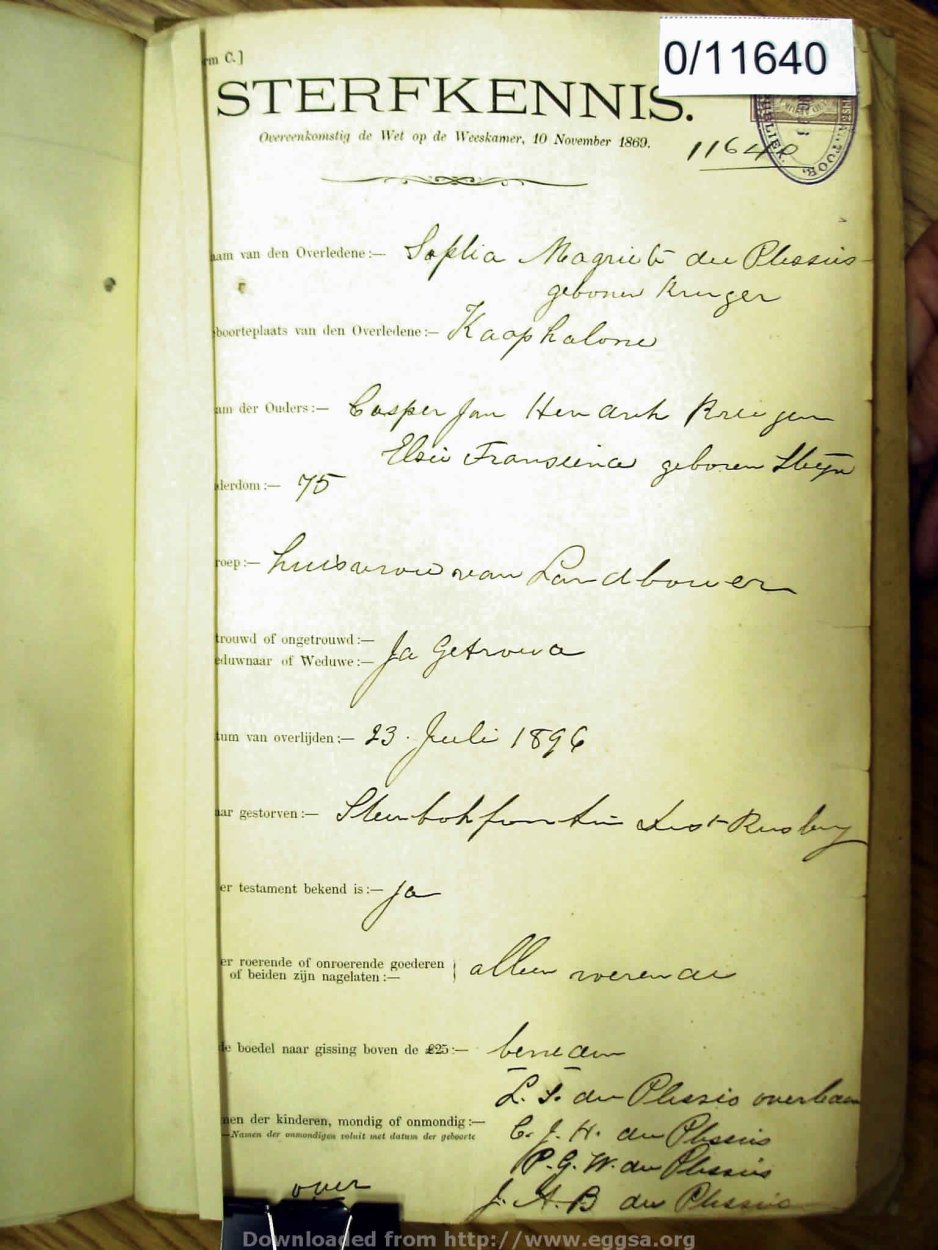 0/11640
rm C.]
STERFKENNIS.
Overeenkomstig de Wet op de Weeskamer, 10 November 1869.
11640
aam van den Overledene:— Sophia Magrieta du Plessis
geboren Kruger
boorteplaats van den Overledene:— Kaap kolonie
am der Ouders:— Casper Jan Hendrik Kruger
Elsie Fransiena geboren Steyn
derdom:— 75
roep:— huisvrouw van Landbouwer
trouwd of ongetrouwd:—
eduwnaar of Weduwe:— Ja Getrouwd
tum van overlijden:— 23 Juli 1896
ar gestorven:— Steenbokfontein Dist Rusbrg
er testament bekend is:— Ja
er roerende of onroerende goederen
of beiden zijn nagelaten:— alleen roerende
de boedel naar gissing boven de £25:— beneden
L. S. du Plessis overleden
men der kinderen, mondig of onmondig:— C. J. H. du Plessis
—Namen der onmondigen voluit met datum der geboorte
P. G. W. du Plessis
J. A. B du Plessis
over
Downloaded from http://www.eggsa.org